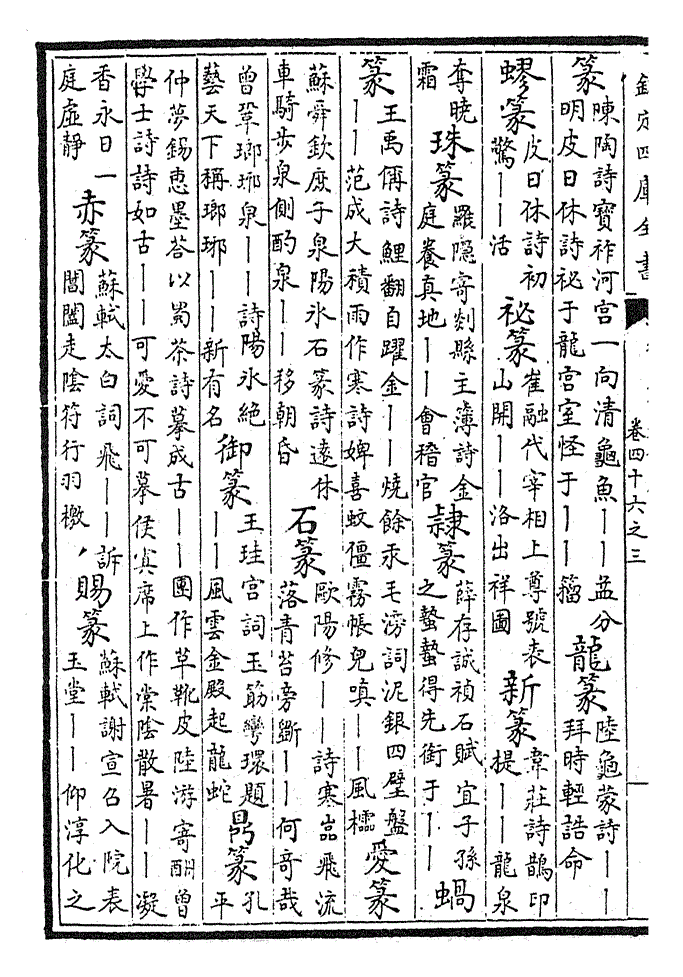 欽定四庫全書
卷四十六之三
篆
陳陶詩寶祚河宫一向清龜魚——益分
明皮日休詩祕于龍宫室怪于——籀
龍篆
陸龜蒙詩——
拜時輕誥命
蟉篆
皮日休詩初
驚——活
祕篆
崔融代宰相上尊號表
山開——洛出祥圖
新篆
韋莊詩鵲印
提——龍泉
奪曉
霜
珠篆
羅隱寄剡縣主薄詩金
庭養真地——會稽官
隸篆
薛存誠禎石賦宜子孫
之蟄蟄得先銜于——
蝸
篆
王禹偁詩鯉翻自躍金——燒餘汞毛滂詞泥銀四壁盤
——范成大積雨作寒詩婢喜蚊僵霧帳兒嗔——風櫺
愛篆
蘇舜欽庶子泉陽氷石篆詩遠休
車騎步泉側酌泉——移朝昏
石篆
歐陽修——詩寒嵓飛流
落青苔旁斵——何奇哉
曾鞏瑯琊泉——詩陽氷絶
藝天下稱瑯琊——新有名
御篆
王珪宫詞玉筯彎環題
——風雲金殿起龍蛇
鼎篆
孔
平
仲夢錫惠墨答以蜀茶詩摹成古——團作草靴皮陸游寄酬曾
學士詩詩如古——可愛不可摹侯寘席上作棠陰散暑——凝
香永日一
庭虚靜
赤篆
蘇軾太白詞飛——訴
閶闔走陰符行羽檄
賜篆
蘇軾謝宣召入院表
玉堂——仰淳化之